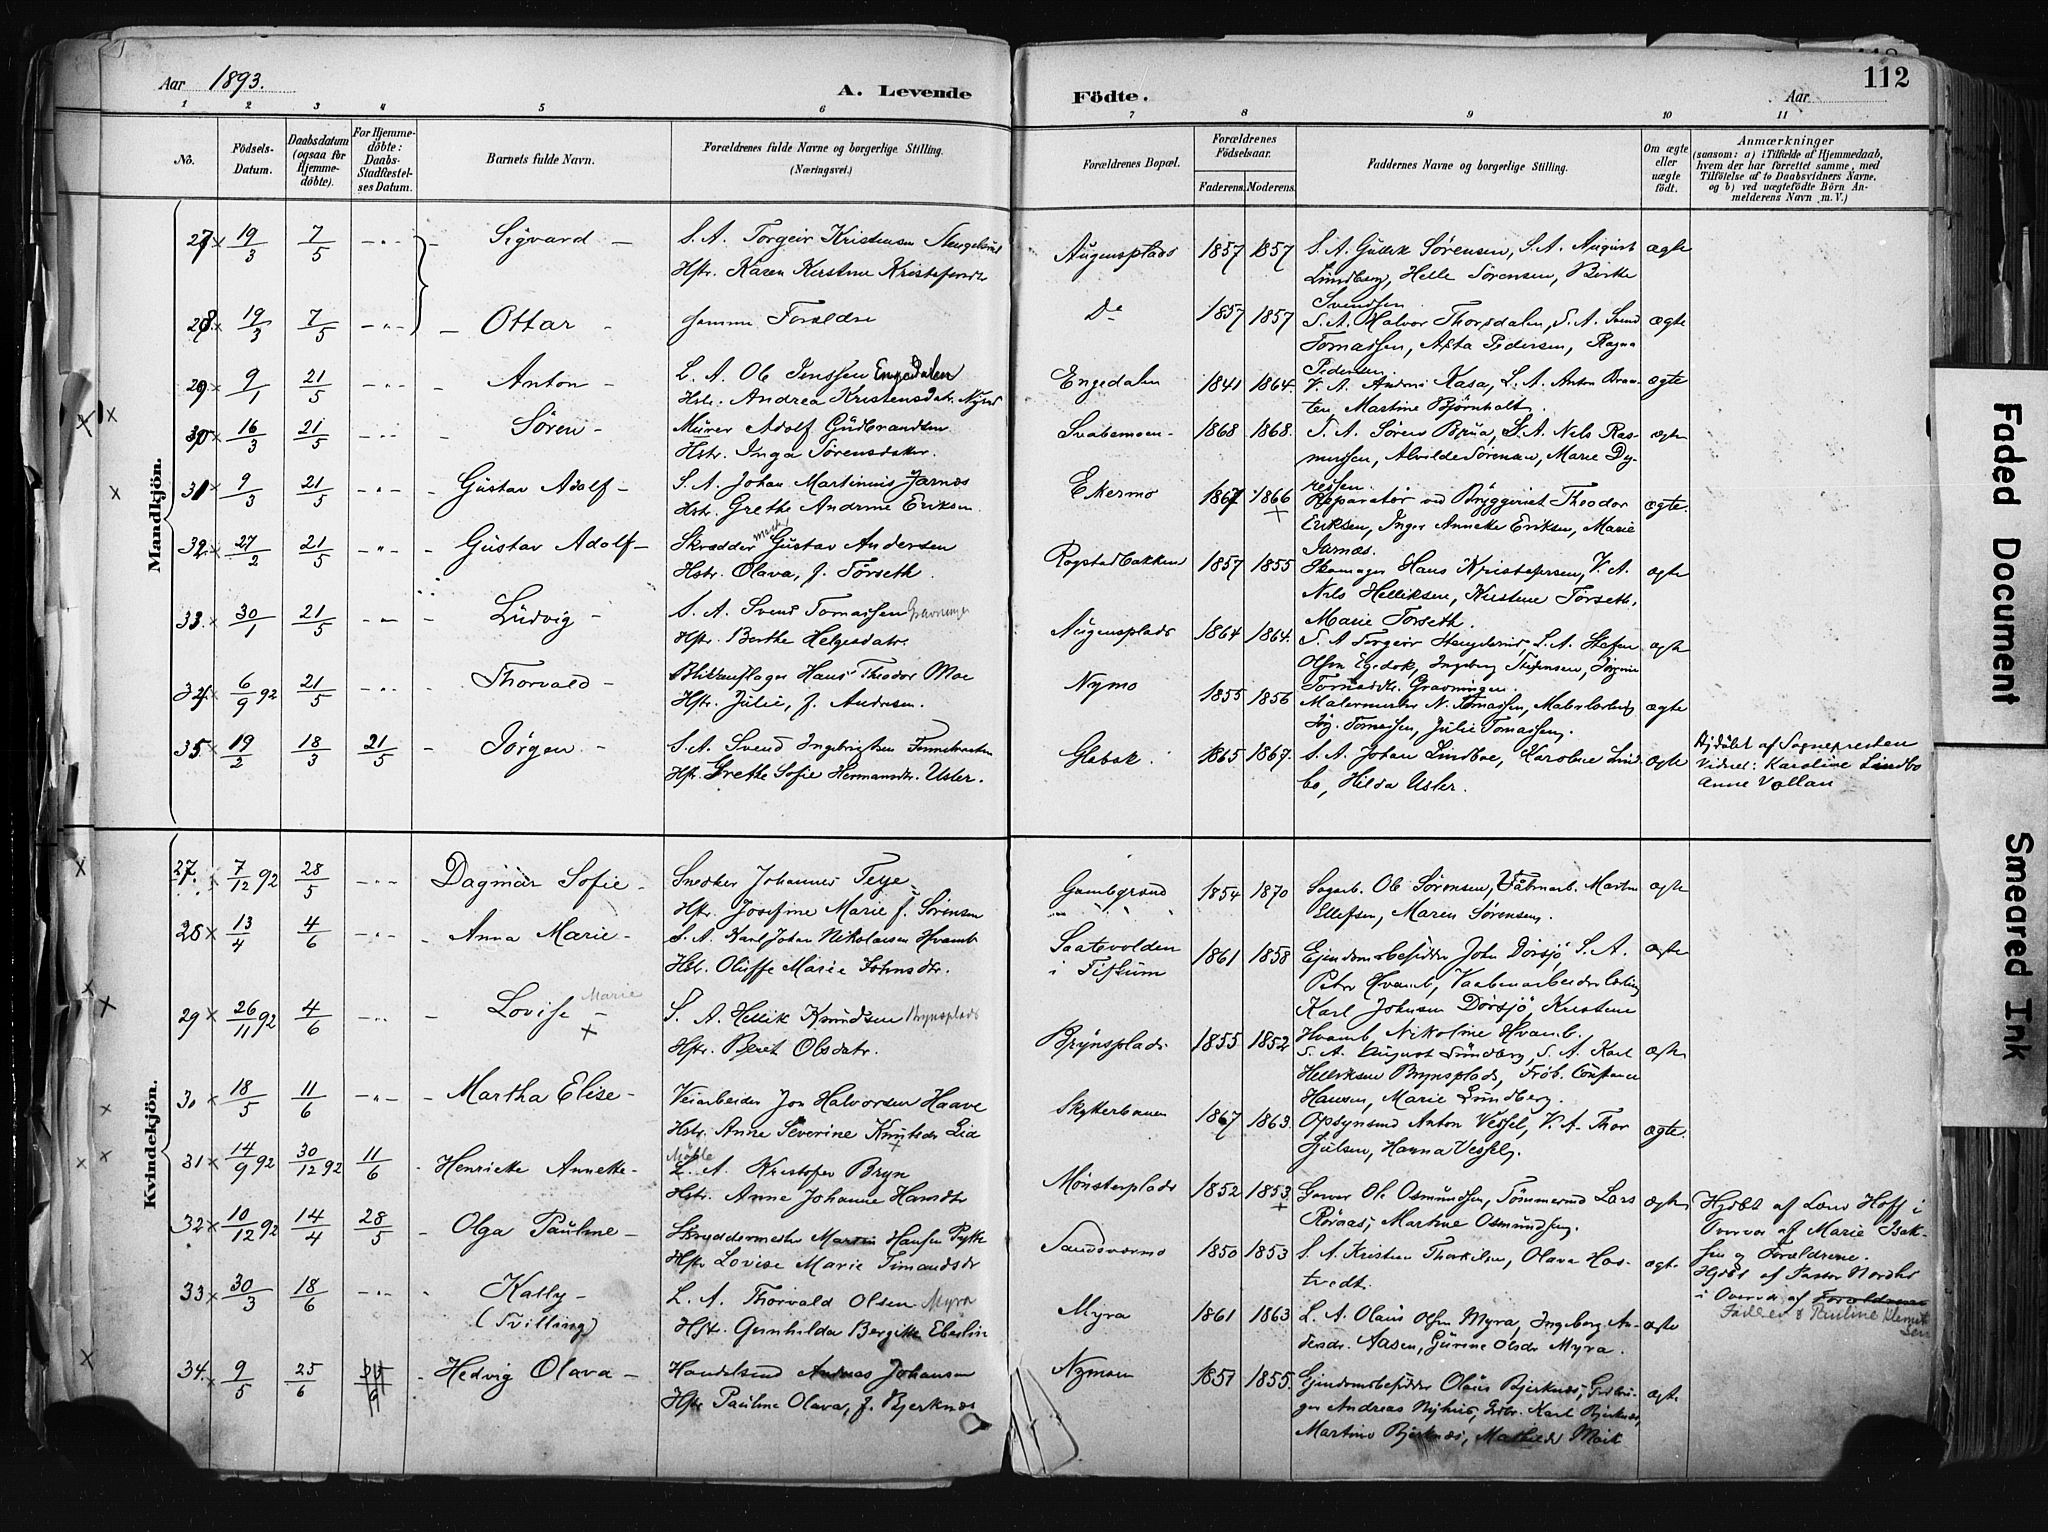 Aar 1893.
A. Levende
Födte.
Aar
112
1 2 3 4 5 6 7 8 9 10 11
No.
Födsels-Datum.
Daabsdatum (ogsaa for Hjemmedöbte).
For Hjemmedöbte: Daabs-Stadfæstelses Datum.
Barnets fulde Navn.
Forældrenes fulde Navne og borgerlige Stilling. (Næringsvei.)
Forældrenes Bopæl.
Forældrenes Födselsaar.
Faderens. Moderens.
Faddernes Navne og borgerlige Stilling.
Om ægte eller uægte födt.
Anmærkninger
(saasom: a) i Tilfælde af Hjemmedaab,
hvem der har forrettet samme, med
Tilföielse af to Daabsvidners Navne,
og b) ved uægtefödte Börn An-
melderens Navn m. V.)
Mandkjön.
27 × 19/3 7/5 -„- Sigvard –
S. A. Torgeir Kristensen
Hstr. Karen Kirstine
Augensplads 1857 1857
S. A. Gullik Sørensen, S. A. August
Lundberg, Helle Sørensen, Berthe
Svendsen
ægte
28 × 19/3 7/5 -„- – Ottar –
samme Forældre
Do 1857 1857
S. A. Halvor Thorsdalen, S. A. Svend
Tomassen, Asta Pedersen, Ragna
Pedersen.
ægte
29 × 9/1 21/5 -„- Anton –
L. A. Ole Jenssen Engedalen
Hstr. Andrea Kristensdatr.
Engedalen 1841 1864.
V. A. Andreas Kasa, L. A. Anton Braa-
ten, Martine Bjørnholt.
ægte
30 × 16/3 21/5 -„- Søren –
Murer Adolf Gudbrandsen
Hstr. Inga Sørensdatter.
Svabemoen – 1868 1868.
S. A. Søren Brua, S. A. Nils Ras-
mussen, Alvilde Sørensen, Marie Dy-
ressen.
ægte
31 9/3 21/5 -„- – Gustav Adolf –
S. A. Johan Martinius Jarnæs
Hstr. Grethe Andrine Eriksen.
Ekermo 1867 1866 +
Reparatør ved Bryggeriet Theodor
Eriksen, Inger Anneke Eriksen, Marie
Jarnæs.
ægte.
32 × 27/2 21/5 -„- – Gustav Adolf –
Skrædder Gustav Andersen
Hstr. Olava, f. Torseth.
Rogstadbakken 1857 1855
Skomager Hans Kristofersen, V. A.
Nils Helliksen, Kirstine Torseth,
Marie Torseth.
ægte
33. × 30/1 21/5 -„- Ludvig –
S. A. Svend Tomassen Gravningen
Hstr. Berthe Helgesdatr.
Augensplads 1864 1864.
S. A. Torgeir S. A. Stefen
Olsen Ingeborg Jørgine
Tomasdtr. Gravningen.
ægte
34. × 6/9 92 21/5 -„- Thorvald –
Hans Theodor Moe
Hstr. Julie, f. Andersen.
Nymo 1855 1856
Malermester N. Tomassen, Malerlærling
Tomassen, Julie Tomassen.
ægte
35. × 19/2 18/3 21/5 – Jørgen –
S. A. Svend Ingebrigtsen
Hstr. Grethe Sofie Hermansdtr. Usler.
Glabak. 1865 1867.
S. A. Johan Lindboe, Karoline Lind-
bo, Hilda Usler.
ægte
Hjdöbt af Sognepresten
Vidner: Karoline Lindbo
Anne Vollan
Kvindekjön.
27. × 7/12 92 28/5 -„- Dagmar Sofie –
Snedker Johannes Teye
Hstr. Josefine Marie f. Sørensen
Gamlegrund 1854 1870
Sagarb. Ole Sørensen, Våbenarb. Martin
Ellefsen, Maren Sørensen.
ægte
28 × 13/4 4/6 -„- – Anna Marie –
S. A. Karl Johan Nikolaisen Hvamb
Hstr. Oluffe Marie Johnsdtr.
Saatevolden
i Fiskum 1861 1858
Ejendomsbesidder John Dorsjø, S. A.
Peter Hvamb, Vaabenarbeiderlærling
Karl Johnsen Dørsjø, Kirstine
Hvamb, Nikoline Hvamb.
ægte
29 × 26/11 92 4/6 -„- – Lovise Marie – +
S. A. Hellik Knudsen Brynsplads
Hstr. Beret Olsdatr.
Brynsplads 1855 1852
S. A. August Lundberg, S. A. Karl
Helliksen Brynsplads, Frøk. Constance
Hansen, Marie Lundberg.
ægte
30 × 18/5 11/6 -„- – Martha Elise –
Veiarbeider Jon Halvorsen Haave
Hstr. Anne Severine Knutsdr Lid
Skytterbanen 1867 1863.
Opsynsmd Anton Vessel, V. A. Thor
Gulsen, Hanna Vessel.
ægte.
31 × 14/9 92 30/12 92 11/6 – Henricke Annette –
L. A. Kristofer Bryn
Hstr. Anne Johanne Hansdtr
Mønsterplads 1852 1853. +
Garver Ole Osmundsen, Tømmermd Lars
Røraas, Martine Osmundsen.
ægte
Hjdbt af Hoff i
Overvær af Marie Isak-
sen og Forældrene.
32 × 10/12 92 14/4 28/5 – Olga Pauline –
Skræddermester Martin Hansen
Hstr Lovise Marie
Sandsværmo 1850 1853
S. A. Kristen Thorkilsen, Olava Hos-
tvedt.
ægte
Hjdbt af Pastor
i Overvær af Forældrene
Pauline
33 × 30/3 18/6 -„- – Kally –
(Tvilling)
L. A. Thorvald Olsen Myra
Hstr. Gunhilda Bergitte Eberlin
Myra 1861 1863
L. A. Olaus Olsen Myra, Ingeborg An-
dersdr. Aasen, Gurine Olsdr Myra.
ægte
34. × 9/5 25/6 25/6 – Hedvig Olava –
Handelsmd Andreas Johansen
Hstr Pauline Olava, f. Bjerknæs
Nymoen 1857 1855.
Ejendomsbesidder Olaus Bjerknæs,
Andreas Nyhus, Karl Bjerknæs,
Martine Bjerknæs, Mathilde Moik
ægte
Faded Document
Smeared Ink